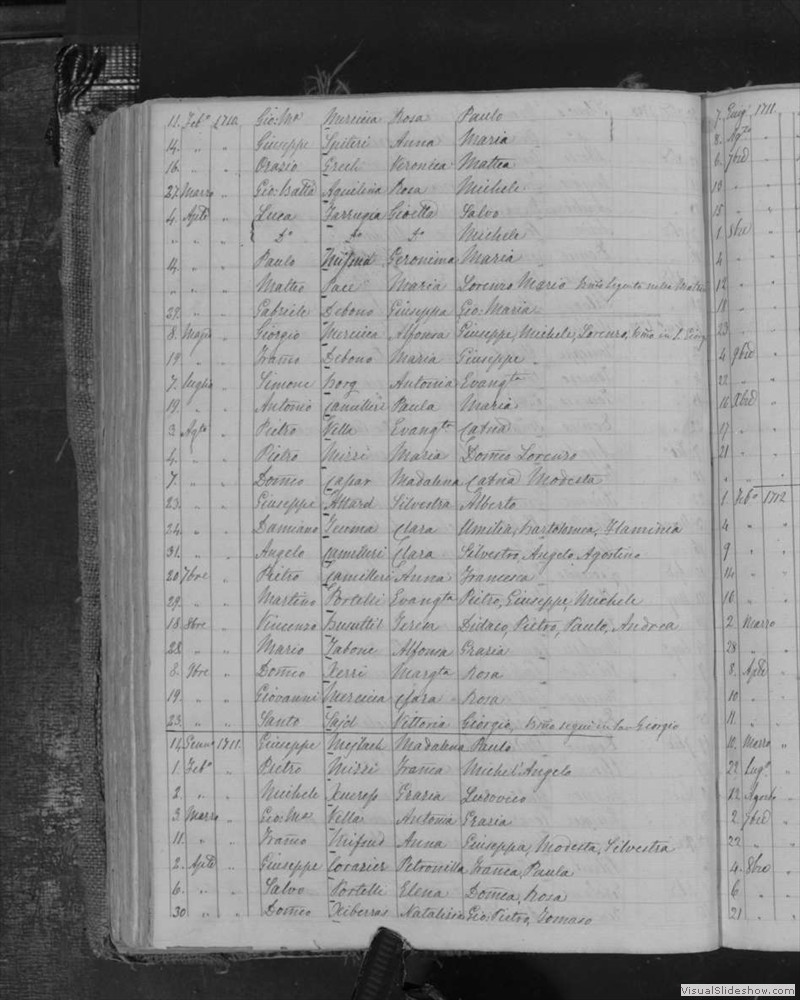 11. Feb° 1710. Gio: Ma Mercieca Rosa Paulo
14. " " Giuseppe Spiteri Anna Maria
16. " " Orasio Grech Veronica Mattea
27. Marzo " Gio: Batta Aquilina Rosa Michele
4. Aple " Luca Farrugia Gioetta Salvo
" " " D° D° D° Michele
14. " " Paulo Mifsud Geronima Maria
" " " Matteo Pace Maria Lorenzo Mario
29. " " Gabriele Debono Giuseppa Gio: Maria
8. Magio " Giorgio Mercieca Alfonsa Giuseppe, Michele, Lorenzo,
19. " " Debono Maria Giuseppe
7. luglio " Simone Borg Antonia Evangta
19. " " Antonio Camilleri Paula Maria
3. Agto " Pietro Vella Evangta Catna
4. " " Pietro Mizzi Maria Domco Lorenzo
7. " " Domco Caspar Madalena Catna Modesta
23. " " Giuseppe Attard Silvestra Alberto
24. " " Damiano Clara Umilia, Bartolomea, Flaminia
31. " " Angelo Camilleri Clara Silvestro, Angelo Agostino
20. 7bre " Pietro Camilleri Anna Francesca
29. " " Martino Portelli Evangta Pietro, Giuseppe, Michele
18. 8bre " Vincenzo Busuttil Didaco, Pietro, Paulo, Andrea
28. " " Mario Zabone Alfonsa Grazia
8. 9bre " Domco Xerri Margta Rosa
19. " " Giovanni Mercieca Clara Rosa
23. " " Santo Vittoria Giorgio,
14. Genno 1711. Giuseppe Meylach Madalena Paulo
1. Feb° " Pietro Mizzi Franca Michel'Angelo
2. " " Michele Xuereb Grazia Ludovico
3. Marzo " Gio: Ma Vella Antonia Grazia
11. " " Mifsud Anna Giuseppa, Modesta, Silvestra
2. Aple " Giuseppe Petronilla Franca, Paula
6. " " Salvo Portelli Elena Domca, Rosa
30 " " Domco Xiberras Natalizia Gio: Pietro, Tomaso
7. Lugo 1711.
8. Agto "
6. 7bre "
13 " "
15 " "
1 8bre "
4 " "
12 " "
18 " "
23 " "
4 9bre "
22 " "
16 Xbre "
17 " "
21 " "
1. Feb° 1712
4 " "
9 " "
14 " "
16 " "
2. Marzo "
28 " "
8. Aple "
10. " "
11. " "
10. Marzo "
22. Lugo "
12. Agosto "
2. 7bre "
22. " "
4. 8bre "
6 " "
21 " "
VisualSlideshow.com